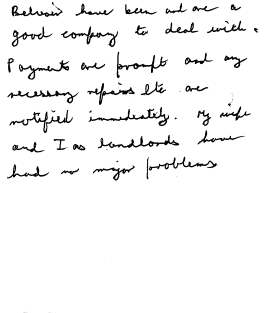 Belvoir have been and are a
good company to deal with.
Payments are prompt and any
necessary repairs etc are
notified immediately. My wife
and I as landlords have
had no major problems